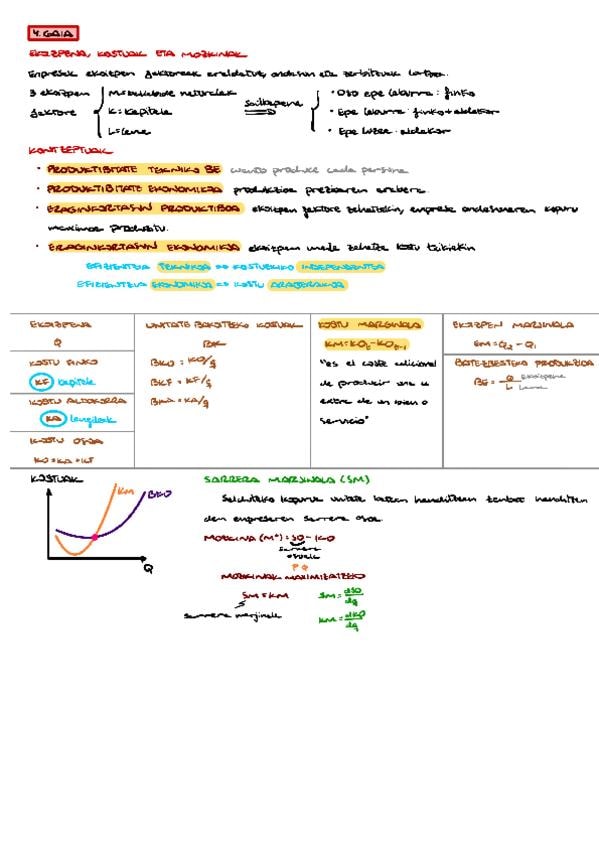 4. GAIA
EKOIZPENA, KOSTUAK ETA MOZKINAK
Enpresek ekoizpen faktoreak eraldatuz, ondasun eta zerbitzuak lortzen.
3 ekoizpen
faktore
M= baliabide naturalak
K= Kapitala
L= Lana
Sailkapena
• Oso epe laburra: finko
• Epe laburra: finko + aldakor
• Epe luzea: aldakor
KONTZEPTUAK
• PRODUKTIBITATE TEKNIKO BE cuanto produce cada persona
• PRODUKTIBITATE EKONOMIKOA produkzioa prezioaren arabera.
• ERAGINKORTASUN PRODUKTIBOA ekoizpen faktore zehatzekin, enpresak ondasunaren kopuru
maximoa produzitu.
• ERAGINKORTASUN EKONOMIKOA ekoizpen maila zehatza kostu txikiekin
EFIZIENTZIA TEKNIKOA => KOSTUEKIKO INDEPENDENTEA
EFIZIENTZIA EKONOMIKOA => KOSTU ARABERAKOA
EKOIZPENA
Q
KOSTU FINKO
KF kapitala
KOSTU ALDAKORRA
KA langileak
KOSTU OSOA
KO=KA+KF
UNITATE BAKOITZEKO KOSTUAK
BK
BKO = KO/q
BKF = KF/q
BKA = KA/q
KOSTU MARJINALA
"es el coste adicional
de producir una u.
extra de un bien o
servicio"
EKOIZPEN MARJINALA
EM=Q2-Q1
BATEZBESTEKO PRODUKZIOA
BE= Q ekoizpena
L lana
KOSTUAK
KM
BKO
Q
SARRERA MARJINALA (SM)
Saldutako kopurua unitate batean handitzean zenbat handitzen
den enpresaren sarrera osoa.
MOZKINA (M°)= SO - KO
sarrera
osoak
P Q
MOZKINAK MAXIMIZATZEKO
SM=KM
sarrera marjinala
SM= dSO
dq
KM= dKO
dq